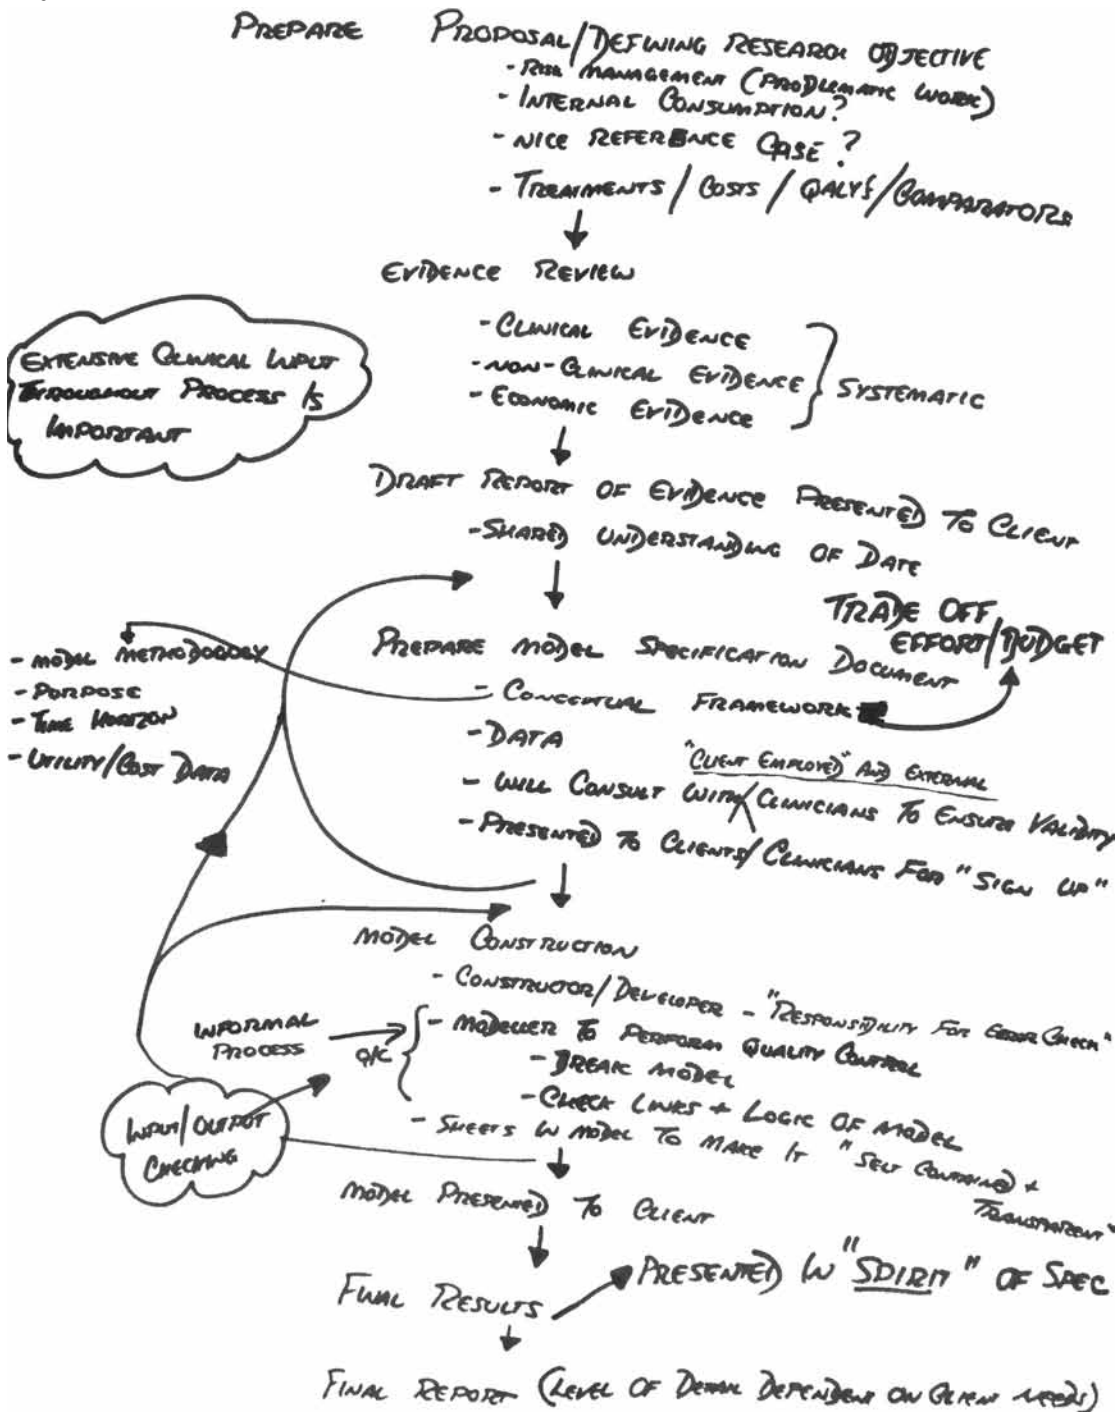 PREPARE PROPOSAL/DEFINING RESEARCH OBJECTIVE
- RISK MANAGEMENT (PROBLEMATIC WORK)
- INTERNAL CONSUMPTION?
- NICE REFERENCE CASE?
- TREATMENTS / COSTS / QALYS / COMPARATORS
EVIDENCE REVIEW
- CLINICAL EVIDENCE
- NON-CLINICAL EVIDENCE
- ECONOMIC EVIDENCE
SYSTEMATIC
EXTENSIVE CLINICAL INPUT
THROUGHOUT PROCESS IS
IMPORTANT
DRAFT REPORT OF EVIDENCE PRESENTED TO CLIENT
- SHARED UNDERSTANDING OF DATE
TRADE OFF
EFFORT/BUDGET
PREPARE MODEL SPECIFICATION DOCUMENT
- CONCEPTUAL FRAMEWORK
- MODEL METHODOLOGY
- PURPOSE
- TIME HORIZON
- UTILITY/COST DATA
- DATA
"CLIENT EMPLOYED" AND EXTERNAL
- WILL CONSULT WITH CLINICIANS TO ENSURE VALIDITY
- PRESENTED TO CLIENTS/CLINICIANS FOR "SIGN UP"
MODEL CONSTRUCTION
- CONSTRUCTOR/DEVELOPER - "RESPONSIBILITY FOR ERROR CHECK"
INFORMAL
PROCESS
Q/C
- MODELLER TO PERFORM QUALITY CONTROL
- BREAK MODEL
- CHECK LINKS + LOGIC OF MODEL
- SHEETS IN MODEL TO MAKE IT "SELF CONTAINED +
TRANSPARENT"
INPUT/OUTPUT
CHECKING
MODEL PRESENTED TO CLIENT
FINAL RESULTS
PRESENTED IN "SPIRIT" OF SPEC
FINAL REPORT (LEVEL OF DETAIL DEPENDENT ON CLIENT NEEDS)